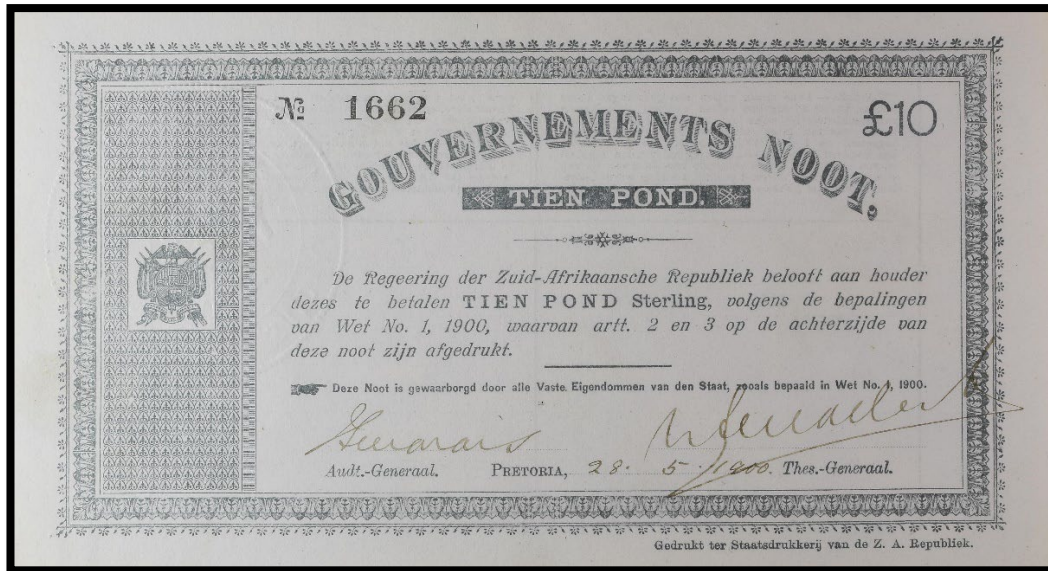 № 1662
£10
GOUVERNEMENTS NOOT,
TIEN POND.
De Regeering der Zuid-Afrikaansche Republiek belooft aan houder
dezes te betalen TIEN POND Sterling, volgens de bepalingen
van Wet No. 1, 1900, waarvan artt. 2 en 3 op de achterzijde van
deze noot zijn afgedrukt.
Deze Noot is gewaarborgd door alle Vaste Eigendommen van den Staat, zooals bepaald in Wet No. 1, 1900.
Audt.-Generaal. PRETORIA, 28. 5. 1900. Thes.-Generaal.
Gedrukt ter Staatsdrukkerij van de Z. A. Republiek.